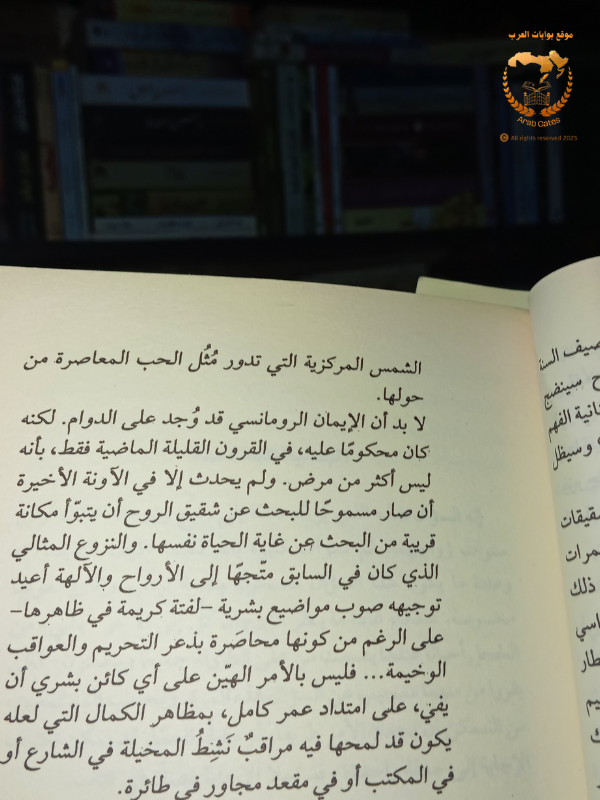 موقع بوابات العرب
Arab Gates
© All rights reserved 2025
الشمس المركزية التي تدور مُثُل الحب المعاصرة من
حولها.
لا بد أن الإيمان الرومانسي قد وُجد على الدوام. لكنه
كان محكومًا عليه، في القرون القليلة الماضية فقط، بأنه
ليس أكثر من مرض. ولم يحدث إلا في الآونة الأخيرة
أن صار مسموحًا للبحث عن شقيق الروح أن يتبوّأ مكانة
قريبة من البحث عن غاية الحياة نفسها. والنزوع المثالي
الذي كان في السابق متّجهًا إلى الأرواح والآلهة أعيد
توجيهه صوب مواضيع بشرية –لفتة كريمة في ظاهرها–
على الرغم من كونها محاصَرة بذعر التحريم والعواقب
الوخيمة... فليس بالأمر الهيّن على أي كائن بشري أن
يفي، على امتداد عمر كامل، بمظاهر الكمال التي لعله
يكون قد لمحها فيه مراقبٌ نَشِطُ المخيلة في الشارع أو
في المكتب أو في مقعد مجاور في طائرة.
صيف السنة
سينضج
الفهم
وسيظل
ذلك